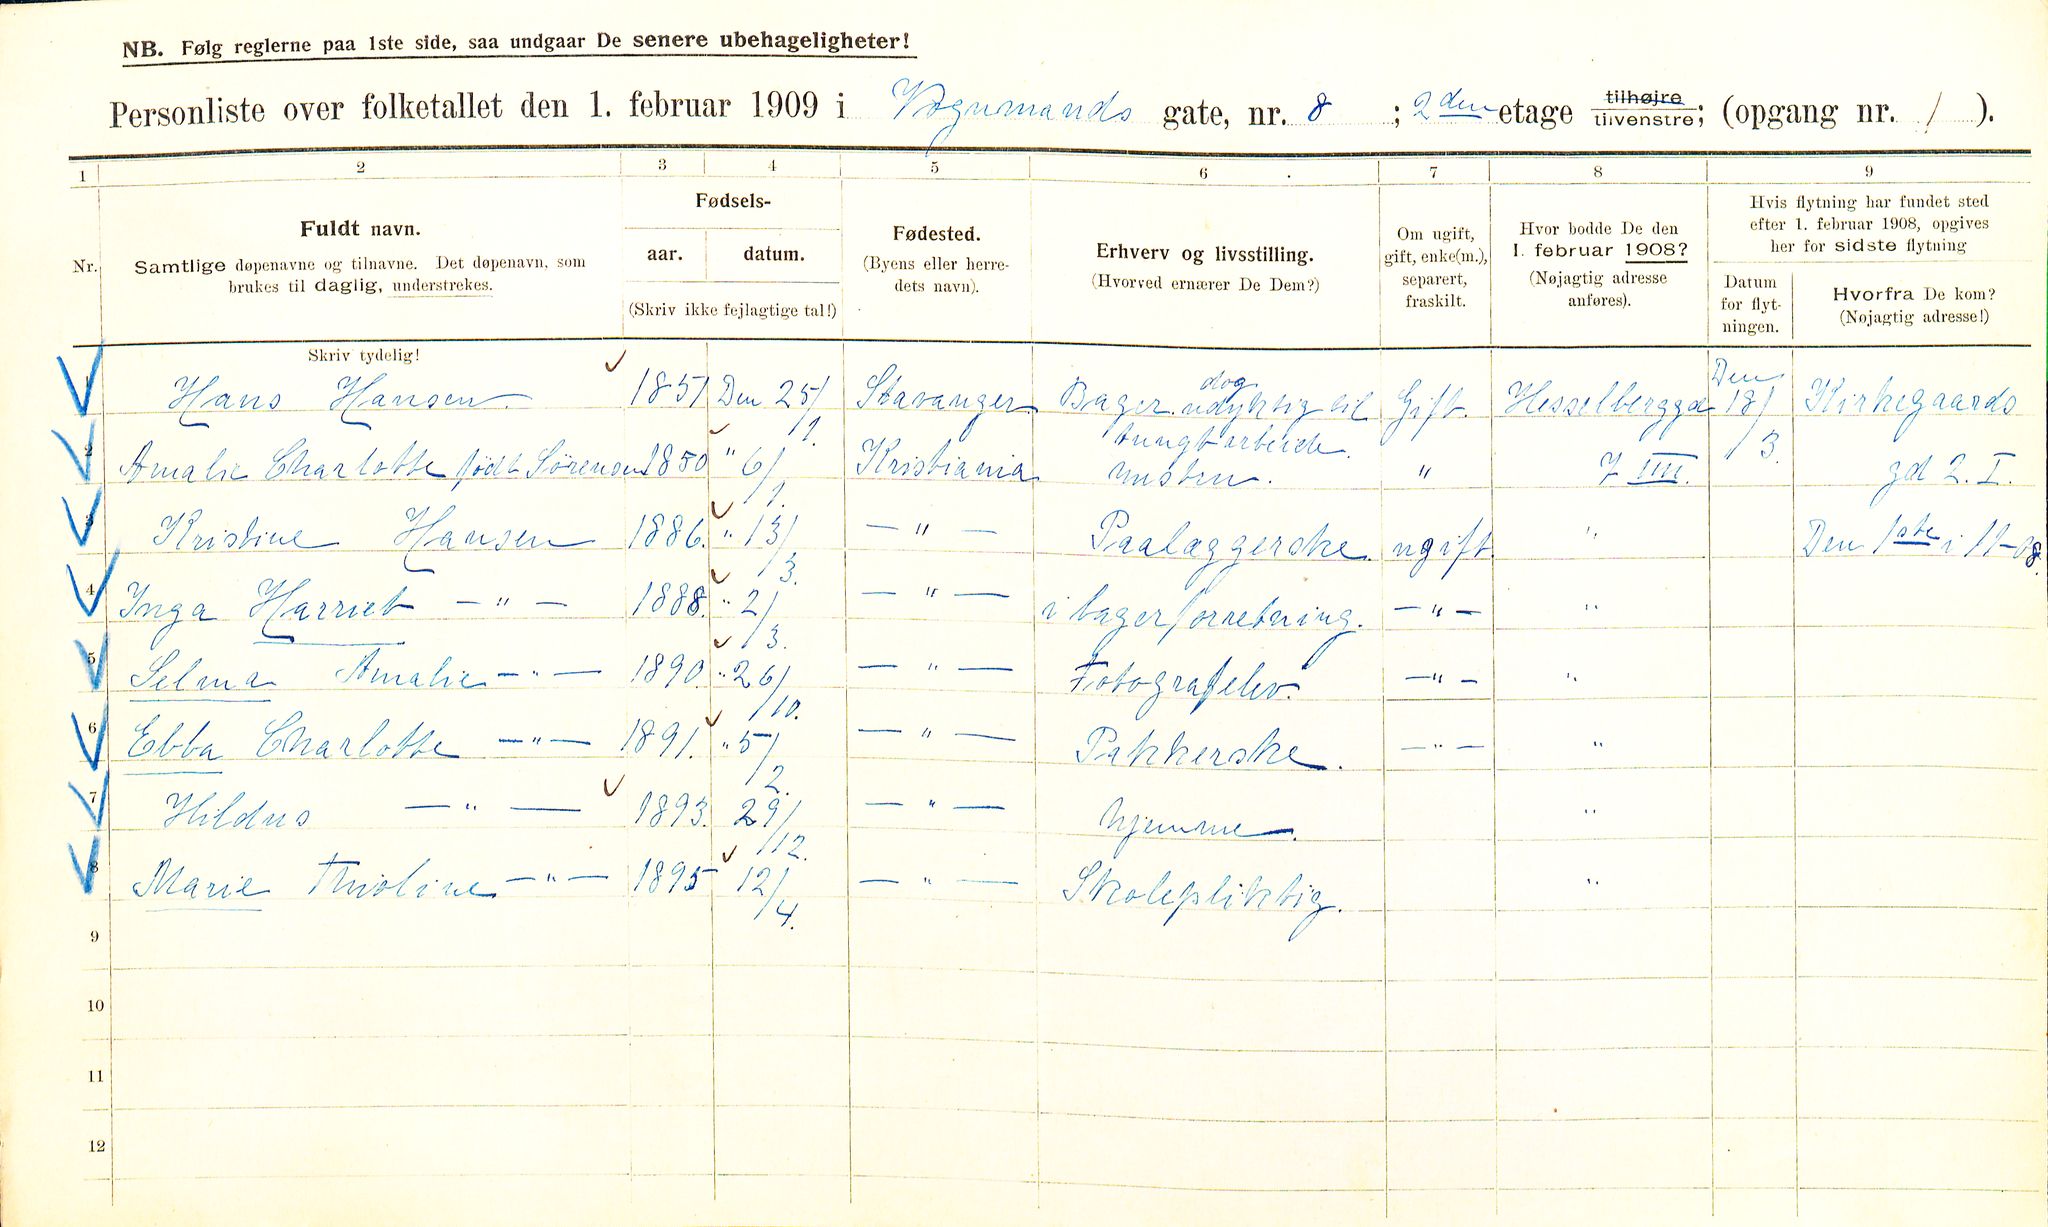 NB. Følg reglerne paa 1ste side, saa undgaar De senere ubehageligheter!
Personliste over folketallet den 1. februar 1909 i Vognmands gate, nr. 8 ; 2den etage tilhøjre tilvenstre; (opgang nr. 1 ).
1 2 3 4 5 6 7 8 9
Nr.
Fuldt navn.
Samtlige døpenavne og tilnavne. Det døpenavn, som
brukes til daglig, understrekes.
Skriv tydelig!
Fødsels-
aar. datum.
(Skriv ikke fejlagtige tal!)
Fødested.
(Byens eller herre-
dets navn).
Erhverv og livsstilling.
(Hvorved ernærer De Dem?)
Om ugift,
gift, enke(m.),
separert,
fraskilt.
Hvor bodde De den
1. februar 1908?
(Nøjagtig adresse
anføres).
Hvis flytning har fundet sted
efter 1. februar 1908, opgives
her for sidste flytning
Datum
for flyt-
ningen.
Hvorfra De kom?
(Nøjagtig adresse!)
1 Hans Hansen. 1851 Den 25/1. Stavanger Bager. dog udyktig til Gift. Hesselberggd Den 18/3. Kirkegaards
tungt arbeide.
2 Amalie Charlotte født Sörensen 1850 " 6/1. Kristiania " 7 IIII. gd 2. I.
3 Kristine Hansen 1886. " 13/3. — " — Paalæggerske. ugift " Den 1ste i 11-08.
4 Inga Harriet — " — 1888. " 2/3. — " — i bagerforretning. — " — "
5 Selma Amalie — " — 1890. " 26/10. — " — Fotografelev. — " — "
6 Ebba Charlotte — " — 1891. " 5/2. — " — Pakkerske. — " — "
7 — " — 1893. 29/12. — " — hjemme. "
8 Marie — " — 1895 12/4. — " — Skolepliktig. "
9
10
11
12